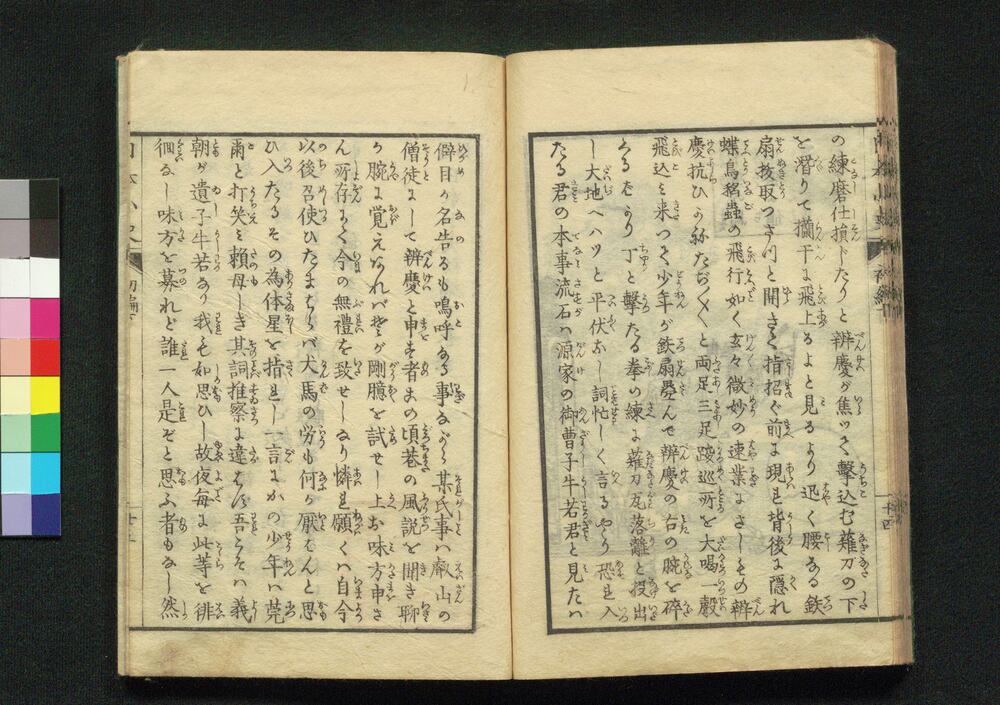 の練磨仕損じたりと辨慶が焦ッて撃込む薙刀の下
を潜りて攔干に飛上るよと見るより迅く腰ある鉄
扇抜取つさつと開きて指招ぐ前に現れ背後に隠れ
蝶鳥貉蟲の飛行如く玄々微妙の速業にさしもの辨
慶抗ひかねたぢ〱と両足三足踆巡所を大喝一聲
飛込ミ来つて少年が鉄扇疊んで辨慶の右の腕を砕
くるばかり丁と撃たる拳の練に薙刀瓦落離と投出
し大地へハツと平伏なし詞忙しく言るやう恐れ入
たる君の本事流石ハ源家の御曹子牛若君と見たハ
僻目か名告るも嗚呼なる事ながら某氏事ハ叡山の
僧徒にして辨慶と申す者この頃巷の風説を聞き聊
か腕に覚えあれバ豈が剛臆を試せし上お味方申さ
ん所存にて今の無禮を致せしなり憐れ願くハ自今
以後召使ひたまはらバ犬馬の労も何か厭はんと思
ひ入たるその為体星を指れし一言にかの少年ハ莞
爾と打笑ミ頼母しき其詞推察に違はず吾こそハ義
朝が遺子牛若なり我も如思ひし故夜毎に此等を徘
徊なし味方を募れど誰一人是ぞと思ふ者もなし然
初編
十四